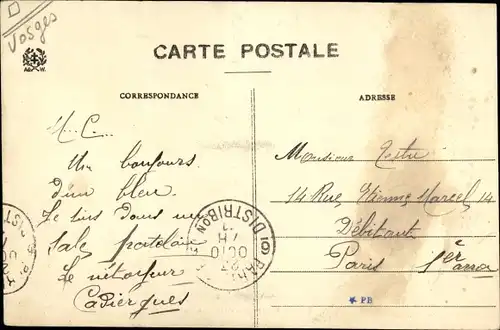 Vosges
CARTE POSTALE
CORRESPONDANCE
ADRESSE
M... C...
Un bonjours
d'un bleu.
Je suis dans un
sale patelin
Le nétoyeur
Monsieur
14 Rue Etienne Marcel 14
Débitant
Paris 1er arro
DISTRIBON
PB